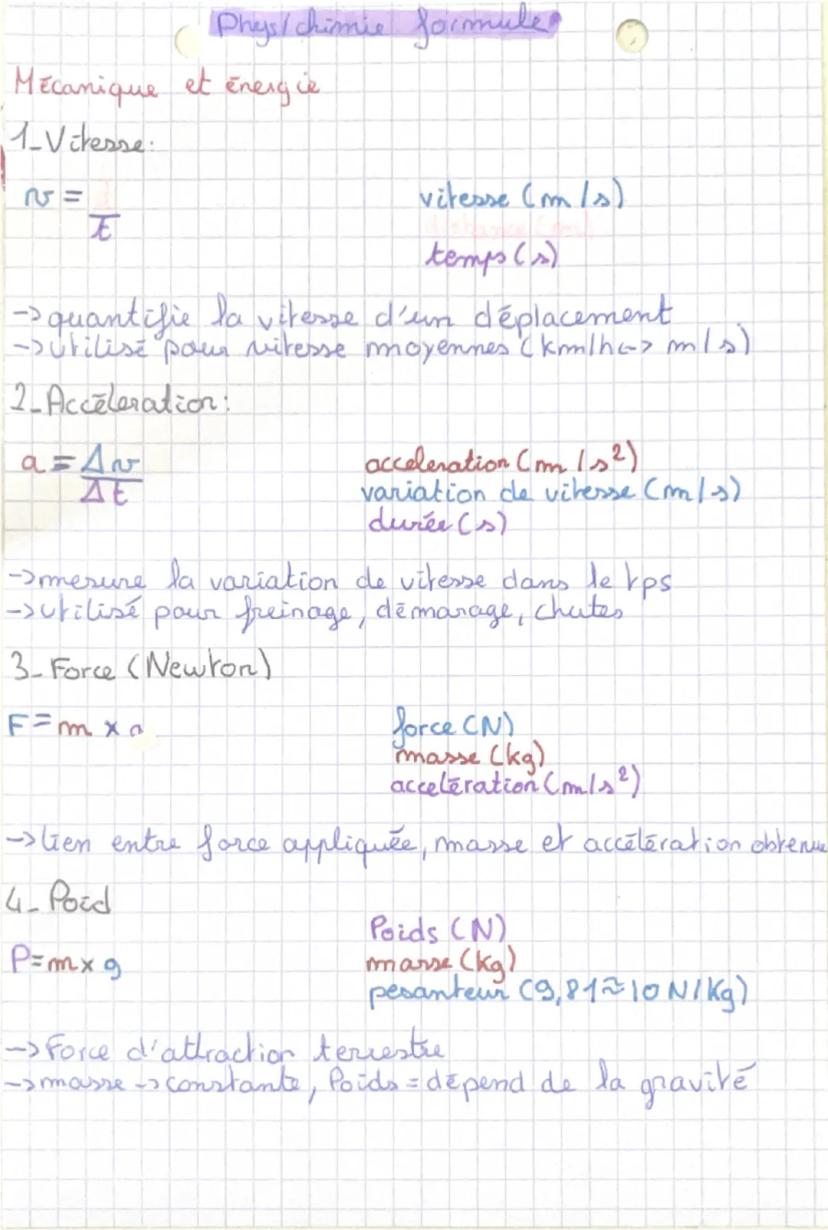 Phys/chimie formule
Mécanique et énergie
1_Vitesse:
v = d
t
vitesse (m/s)
distance (m)
temps (s)
-> quantifie la vitesse d'un déplacement
-> utilisé pour vitesse moyennes (km/h <-> m/s)
2_Accéleration:
a = Δv
Δt
acceleration (m/s²)
variation de vitesse (m/s)
durée (s)
-> mesure la variation de vitesse dans le tps
-> utilisé pour freinage, démarage, chutes
3_Force (Newton)
F = m x a
force (N)
masse (kg)
accelération (m/s²)
-> lien entre force appliquée, masse et accélération obtenue
4_Poid
P = m x g
Poids (N)
masse (kg)
pesanteur (9,81 ≈ 10 N/Kg)
-> Force d'attraction terrestre
-> masse -> constante, Poids = dépend de la gravité